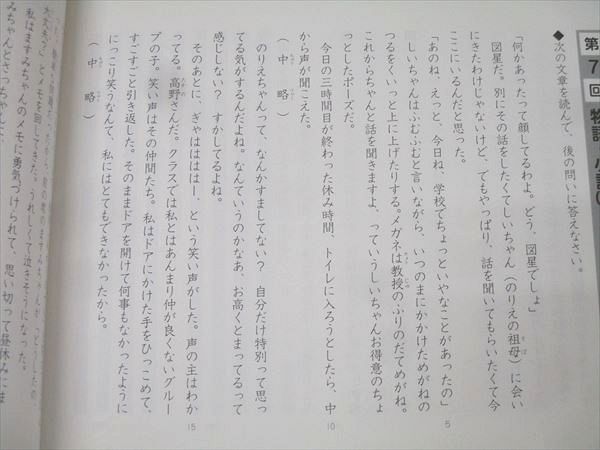 第7回 物語・小説(
◆次の文章を読んで、後の問いに答えなさい。
「何かあったって顔してるわよ。どう、図星でしょ」
図星だ。別にその話をしたくてしいちゃん(のりえの祖母)に会い
にきたわけじゃないけど、でもやっぱり、話を聞いてもらいたくて今
ここにいるんだと思った。
「あのね、えっと、今日ね、学校でちょっといやなことがあったの」
5
しいちゃんはふむふむと言いながら、いつのまにかかけためがねの
つるをくいっと上に上げたりする。メガネは教授のふりのだてめがね。
これからちゃんと話を聞きますよ、っていうしいちゃんお得意のちょ
っとしたポーズだ。
今日の三時間目が終わった休み時間、トイレに入ろうとしたら、中
10
から声が聞こえた。
(中略)
のりえちゃんって、なんかすましてない? 自分だけ特別って思っ
てる気がするんだよね。なんていうのかなあ、お高くとまってるって
感じしない? すかしてるよね。
そのあとに、ぎゃはははは!、という笑い声がした。声の主はわか
15
ってる。高野さんだ。クラスでは私とはあんまり仲が良くないグルー
プの子。笑い声はその仲間たち。私はドアにかけた手をひっこめて、
すごすごと引き返した。そのままドアを開けて何事もなかったように
にっこり笑うなんて、私にはとてもできなかったから。
(中略)
とメモを回してきた。うれしくて泣きそうになった。
私はますみちゃんのメモに勇気づけられて、思い切って昼休みにま